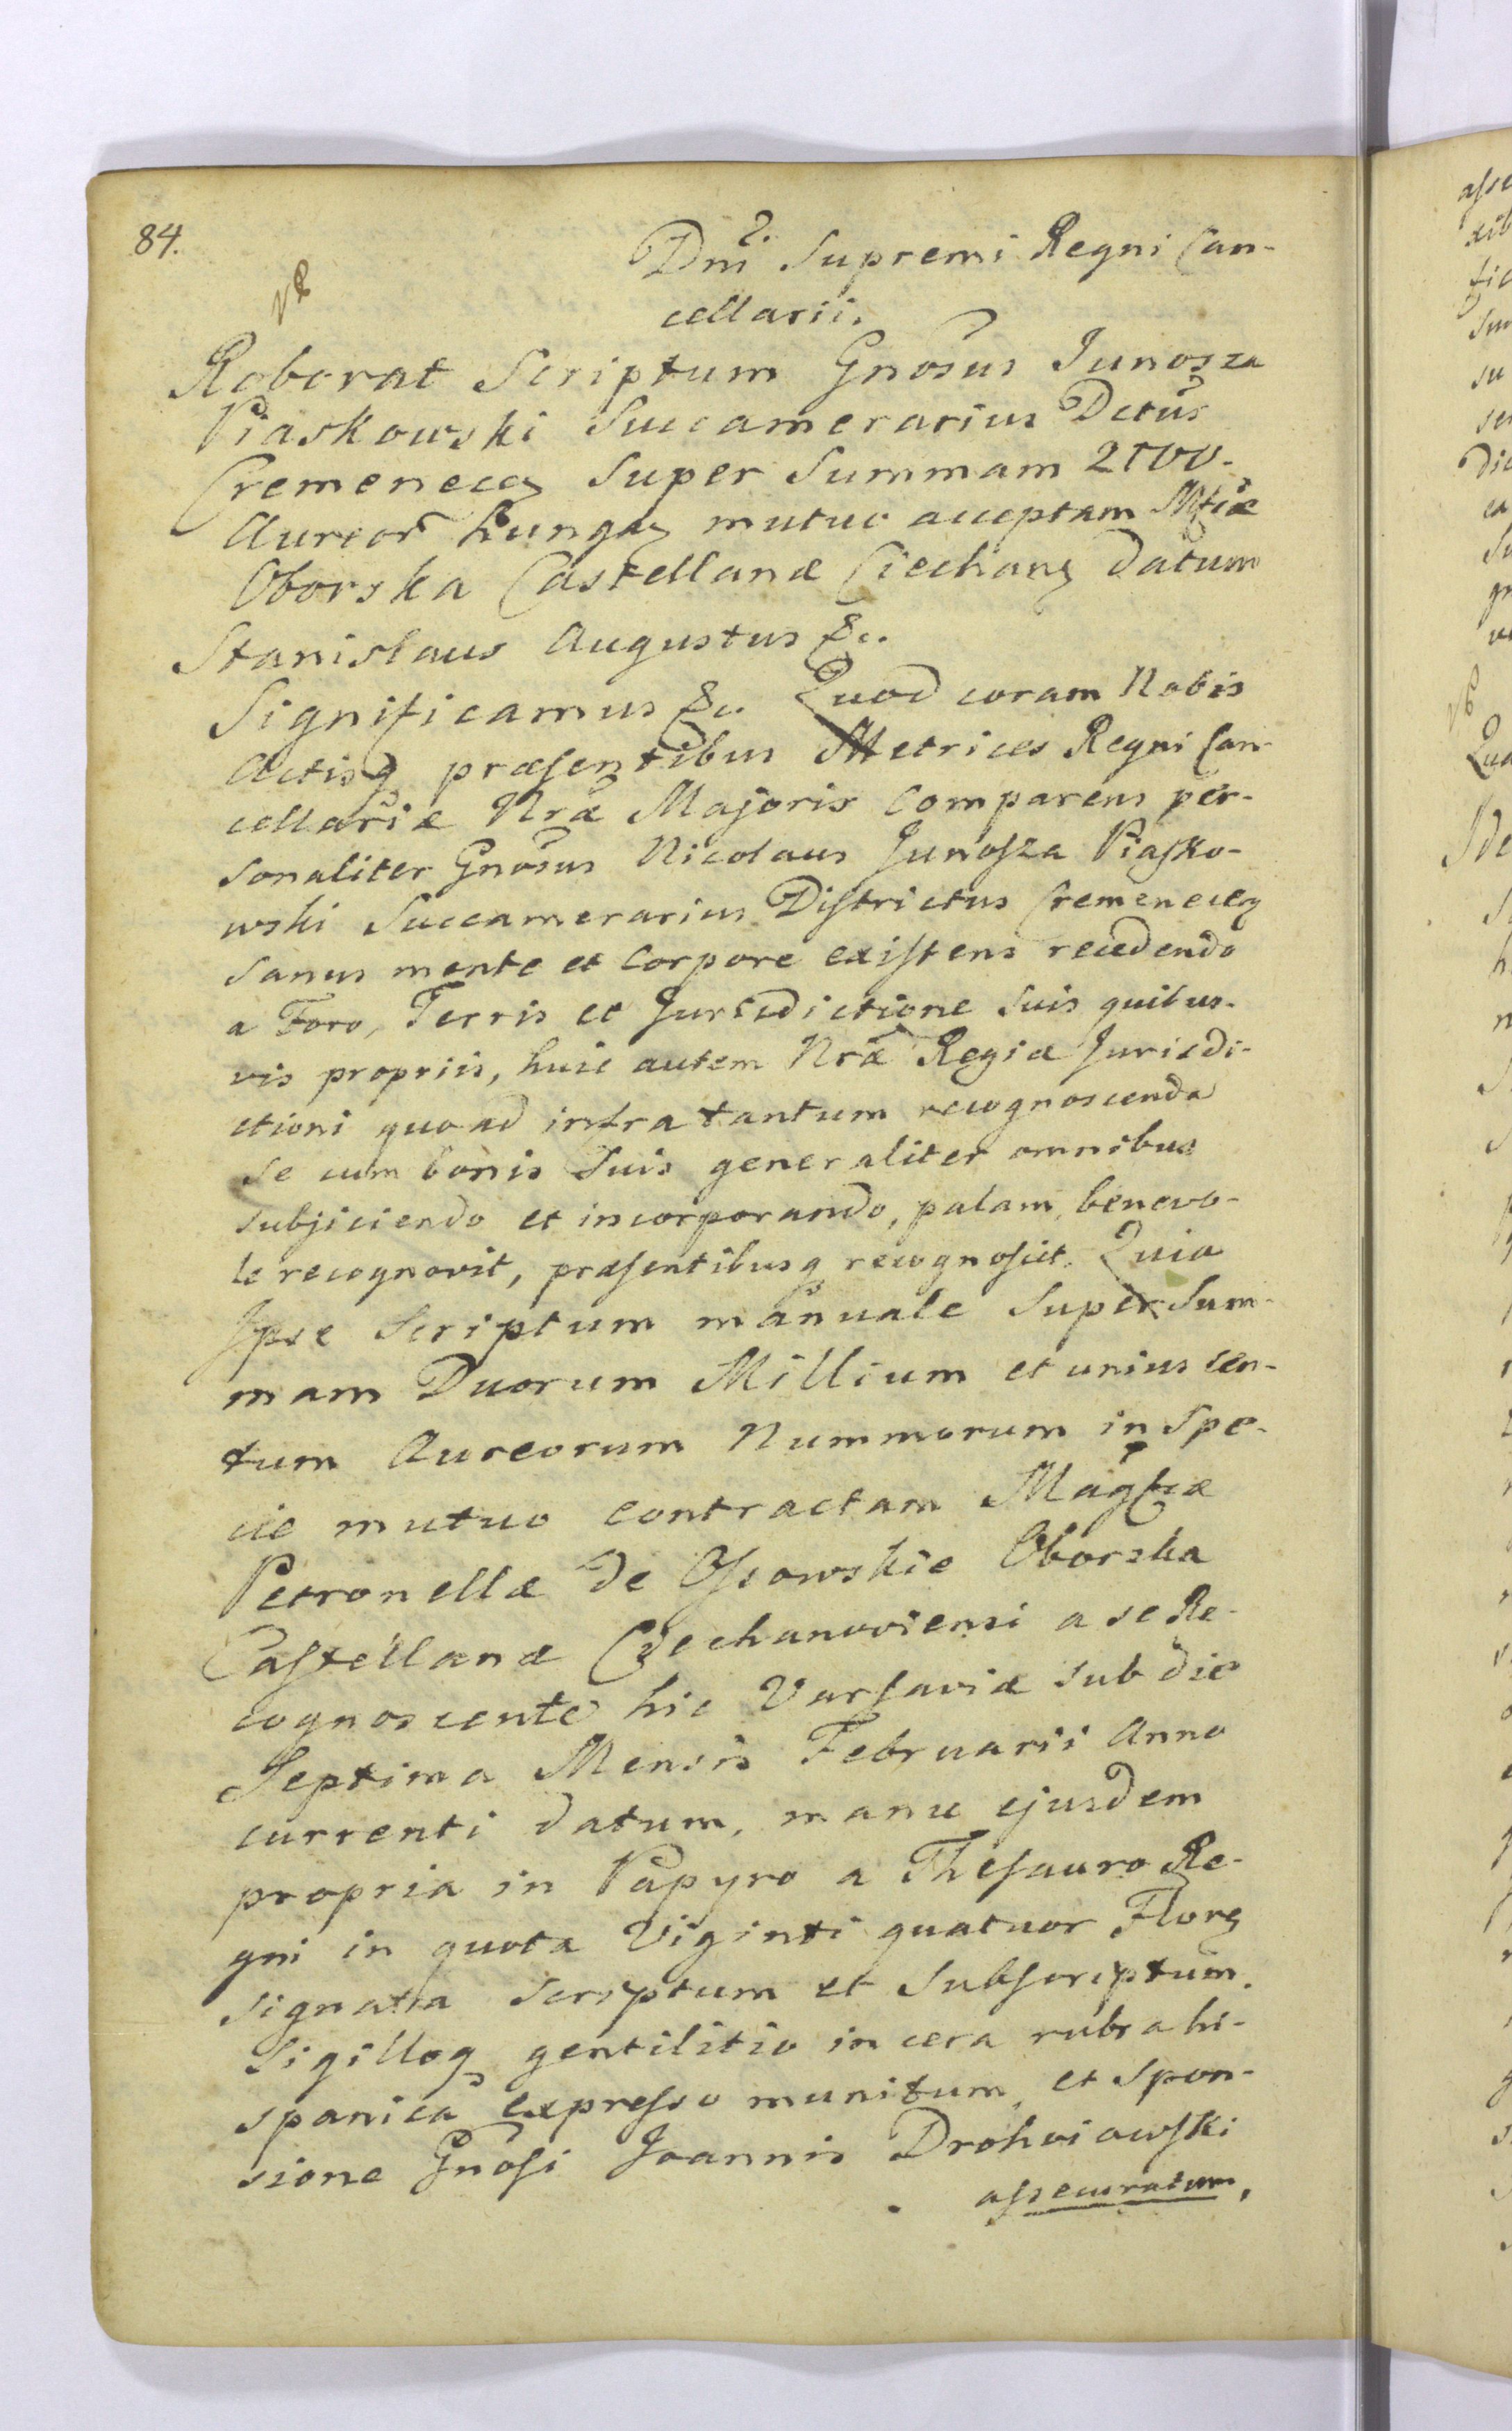 84.
Dni Supremi Regni Can-
cellarii.
Roborat Scriptum Gnosus Junosza
Piaskowski Succamerarius Dctus
Cremenecen Super Summam 2100.
Aureor Hungar mutuo acceptam Mfcæ
Oborska Castellanæ Ciechan datum
Stanislaus Augustus &c.
Significamus &c. Quod coram Nobis
Actisq præsentibus Metrices Regni Can-
cellariæ Nræ Majoris Comparens per-
sonaliter Gnosus Nicolaus Junosza Piasko-
wski Succamerarius Districtus Cremenecen
Sanus mente et Corpore existens recedendo
a Foro, Terris et Jurisdictione Suis quibus-
vis propriis, huic autem Nræ Regiæ Jurisdi-
ctioni quoad infra tantum recognoscenda
Se cum bonis Suis generaliter omnibus
subjiciendo et incorporando, palam, benevo-
le recognovit, præsentibusq recognoscit. Quia
Ipse Scriptum manuale Super Sum-
mam Duorum Millium et unius cen-
tum Aureorum Nummorum in Spe-
cie mutuo contractam Magfcæ
Petronellæ de Ossowskie Oborska
Castellanæ Czechanoviensi a se Re-
cognoscente hic Varsaviæ sub die
Septima Mensis Februarii Anno
currenti datum, manu ejusdem
propria in Papyro a Thesauro Re-
gni in quota Viginti quatuor Flor
signata scriptum et Subscriptum.
Sigilloq gentilitio in cera rubra hi-
spanica expresso munitum, et Spon-
sione Gnosi Joannis Drohoiowski
assecuratum,